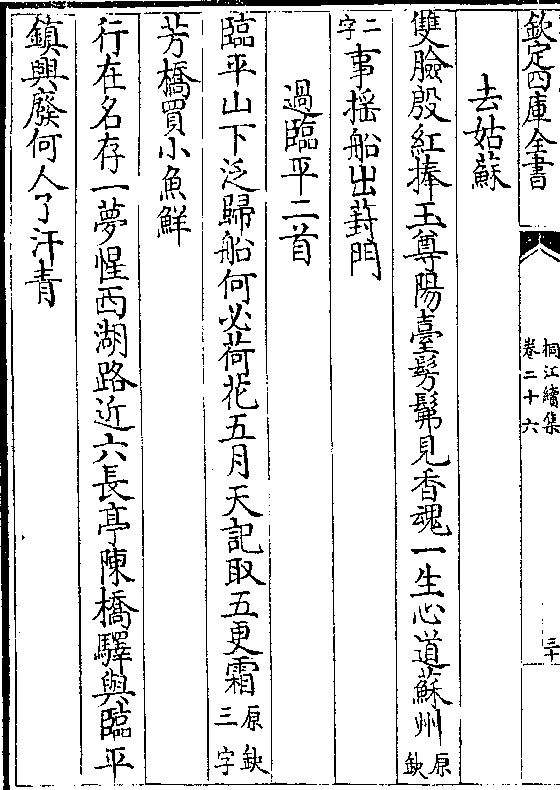 欽定四庫全書
桐江續集
卷二十六
三十
去姑蘇
雙臉殷紅捧玉尊陽臺髣髴見香魂一生心道蘇州原缺
二字事揺船出葑門
過臨平二首
臨平山下泛歸船何必荷花五月天記取五更霜原缺三字
芳橋買小魚鮮
行在名存一夢惺西湖路近六長亭陳橋驛與臨平
鎮興廢何人了汗青